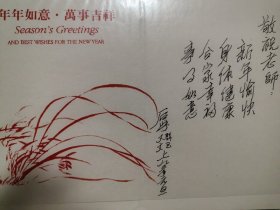 年年如意·萬事吉祥
Season's Greetings
AND BEST WISHES FOR THE NEW YEAR
敬祝老師：
新年愉快
身体健康
合家幸福
事事如意